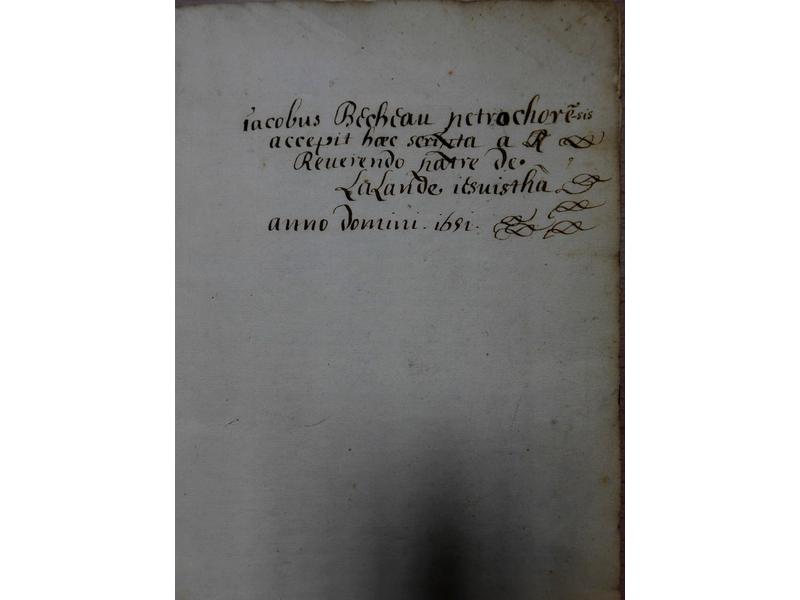 iacobus Becheau petrochorẽsis
accepit hæc scripta a R
Reuerendo patre de
LaLande. iesuisthã
anno domini. 1651.